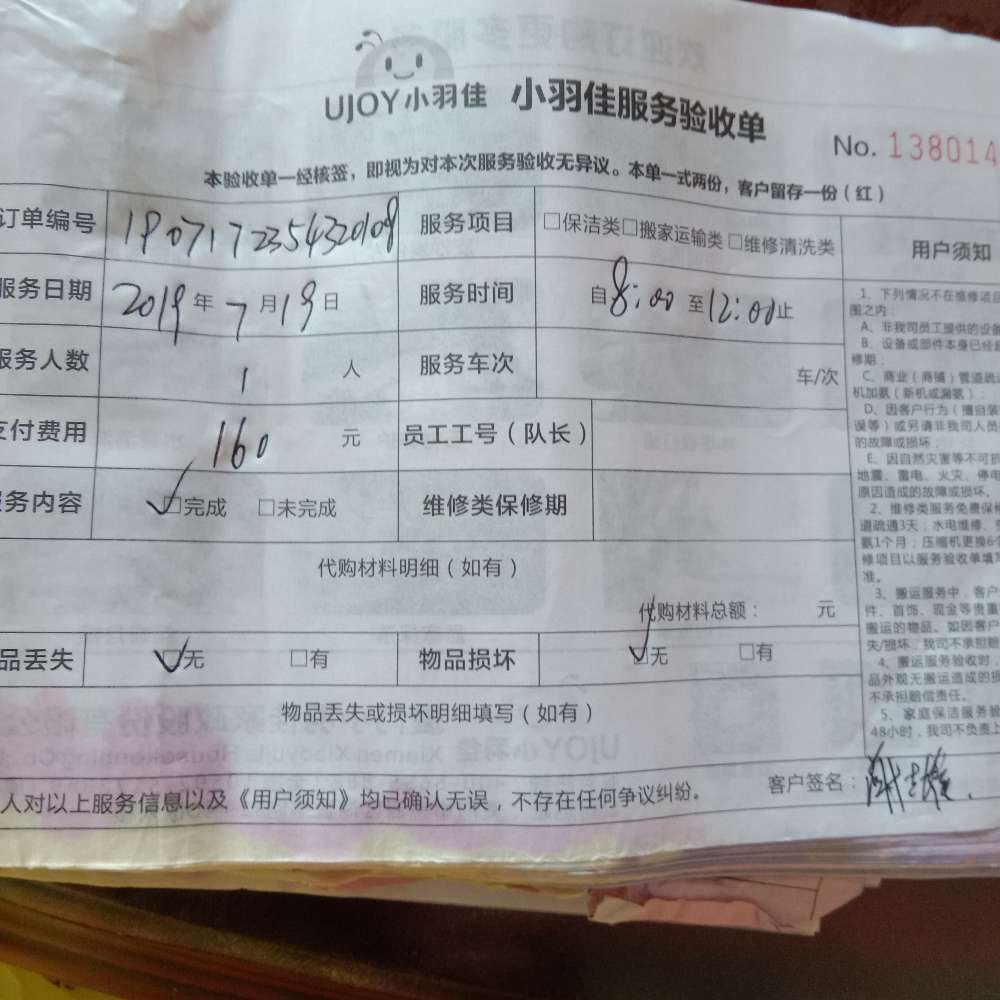 UJOY小羽佳 小羽佳服务验收单
No. 138014
本验收单一经核签，即视为对本次服务验收无异议。本单一式两份，客户留存一份（红）
订单编号 1907172354320109 服务项目 □保洁类□搬家运输类□维修清洗类
服务日期 2019年7月19日 服务时间 自8:00至12:00止
服务人数 1 人 服务车次 车/次
支付费用 160 元 员工工号（队长）
服务内容 □完成 □未完成 维修类保修期
代购材料明细（如有）
代购材料总额： 元
品丢失 □无 □有 物品损坏 □无 □有
物品丢失或损坏明细填写（如有）
人对以上服务信息以及《用户须知》均已确认无误，不存在任何争议纠纷。
客户签名：
用户须知
1、下列情况不在维修项目
围之内：
A、非我司员工提供的设备
B、设备或部件本身已经超
修期；
C、商业（商铺）管道疏
机加氨（新机或漏氨）；
D、因客户行为（擅自装
误等）或另请非我司人员
的故障或损坏
E、因自然灾害等不可抗
地震、雷电、火灾、停电
原因造成的故障或损坏。
2、维修类服务免费保修
道疏通3天；水电维修、
氨1个月；压缩机更换6个
修项目以服务验收单填写
准。
3、搬运服务中，客户
件、首饰、现金等贵重
搬运的物品。如因客户
失/损坏，我司不承担赔
4、搬运服务验收时，
品外观无搬运造成的损
不承担赔偿责任。
5、家庭保洁服务验
48小时，我司不负责上